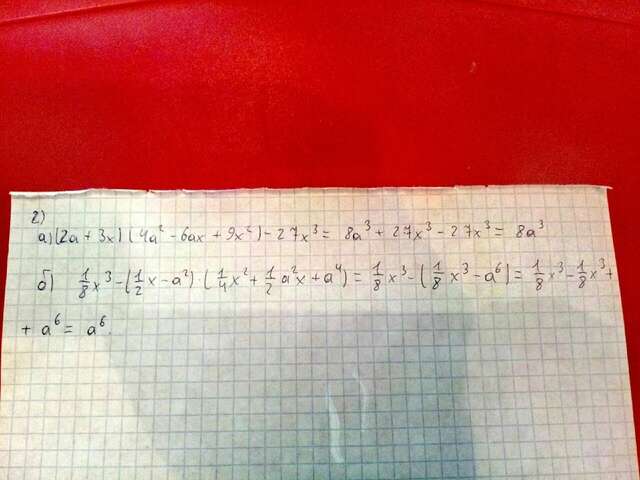 2)
а) (2a + 3x) (4a² - 6ax + 9x²) - 27x³ = 8a³ + 27x³ - 27x³ = 8a³
б) 1/8 x³ - (1/2 x - a²) · (1/4 x² + 1/2 a²x + a⁴) = 1/8 x³ - (1/8 x³ - a⁶) = 1/8 x³ - 1/8 x³ +
+ a⁶ = a⁶.